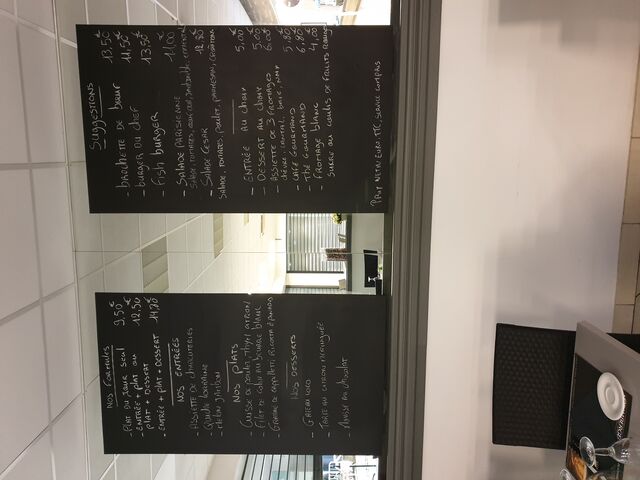 NOS FORMULES
- PLAT DU JOUR SEUL 9,50€
- ENTRÉE + PLAT OU 12,50
PLAT + DESSERT
- ENTRÉE + PLAT + DESSERT 14,70€
NOS ENTRÉES
- ASSIETTE DE CHARCUTERIES
- Quiche lorraine
- Melon jambon
NOS PLATS
- Cuisse de poulet thym citron
- Filet de colin au beurre blanc
- Gratin de cappelletti ricotta épinards
NOS DESSERTS
- GATEAU COCO
- TARTE AU CITRON MERINGUÉE
- Mousse au chocolat
SUGGESTIONS
- BROCHETTE DE bœuf 13,50
- BURGER DU CHEF 14,50€
- Fish burger 13,50€
- SALADE PARISIENNE 11,00€
- SALADE CESAR 12,80
SALADE, TOMATES, POULET, PARMESAN, CROUTONS
- ENTRÉE AU CHOIX 5,00€
- DESSERT AU CHOIX 5,00
- ASSIETTE DE 3 FROMAGES 6,00€
- CAFÉ GOURMAND 5,80
- THÉ GOURMAND 6,80
- FROMAGE BLANC 4,00€
SUCRE OU COULIS DE FRUITS ROUGES
PRIX NET EN EURO TTC, SERVICE COMPRIS